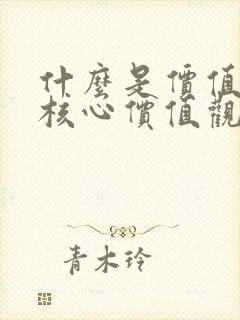 什麼是價值
核心價值觀
青木玲